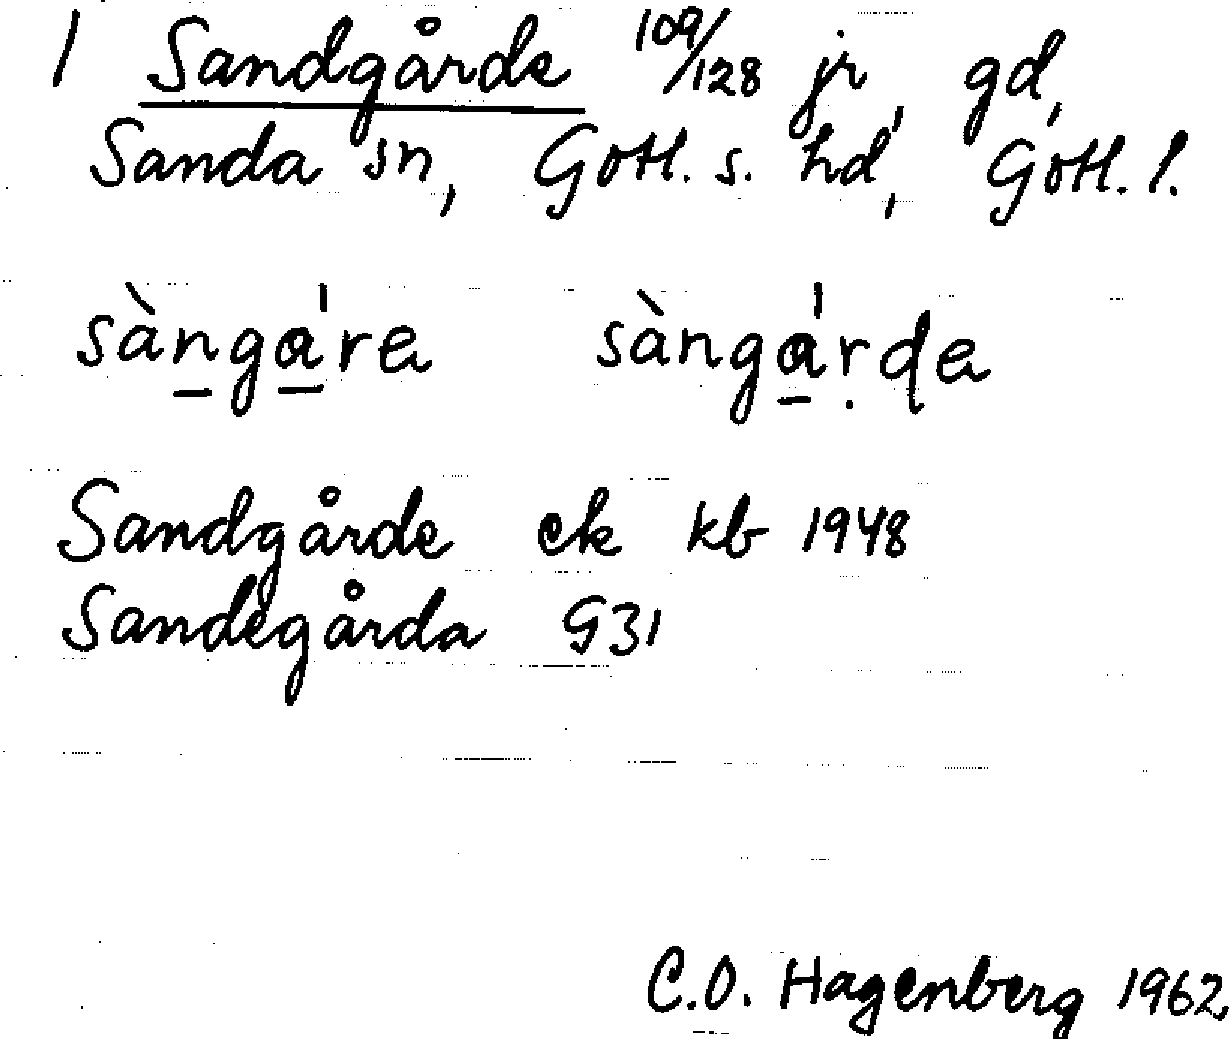 1 Sandgårde 109/128 jr, gd,
Sanda sn, Gotl. s. hd, Gotl. l.
sàngáre sàngárde
Sandgårde ek kb 1948
Sandegårda G31
C.O. Hagenberg 1962